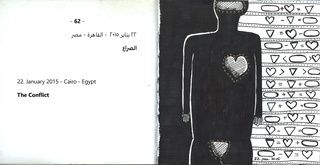 - 62 -
٢٢ يناير ٢٠١٥ - القاهرة - مصر
الصراع
22. January 2015 - Cairo - Egypt
The Conflict